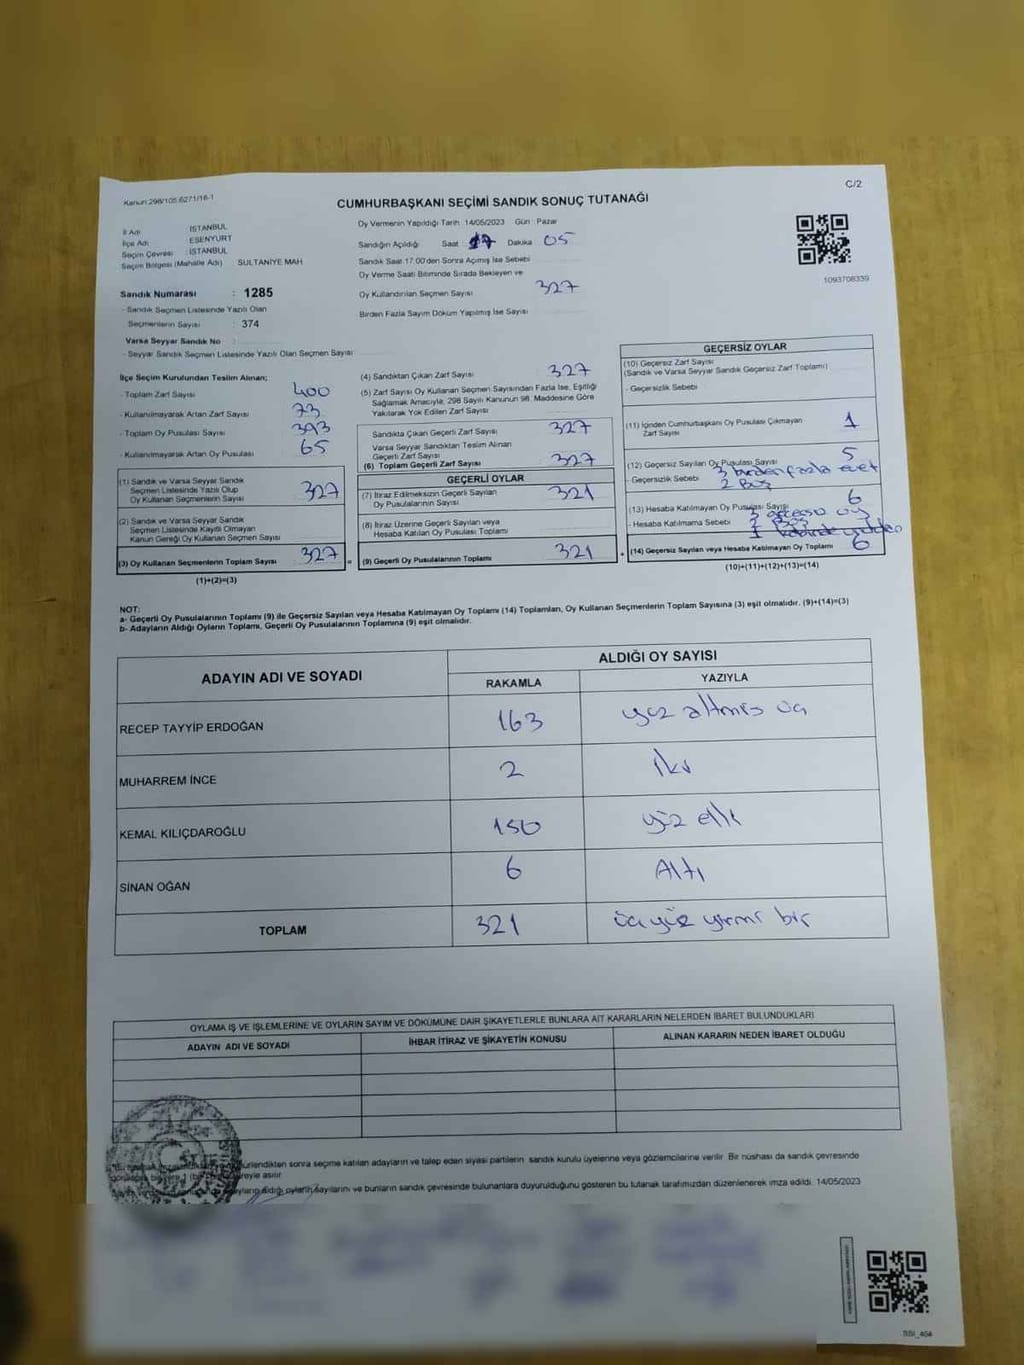 C/2
Kanun:298/105,6271/16-1
CUMHURBAŞKANI SEÇİMİ SANDIK SONUÇ TUTANAĞI
İl Adı : İSTANBUL
İlçe Adı : ESENYURT
Seçim Çevresi : İSTANBUL
Seçim Bölgesi (Mahalle Adı) SULTANİYE MAH.
Oy Vermenin Yapıldığı Tarih : 14/05/2023 Gün : Pazar
Sandığın Açıldığı Saat 17 Dakika 05
Sandık Saat 17:00'den Sonra Açılmış İse Sebebi
Oy Verme Saati Bitiminde Sırada Bekleyen ve
Oy Kullandırılan Seçmen Sayısı 327
Birden Fazla Sayım Döküm Yapılmış İse Sayısı
1093708339
Sandık Numarası : 1285
- Sandık Seçmen Listesinde Yazılı Olan
Seçmenlerin Sayısı : 374
Varsa Seyyar Sandık No :
- Seyyar Sandık Seçmen Listesinde Yazılı Olan Seçmen Sayısı
İlçe Seçim Kurulundan Teslim Alınan;
- Toplam Zarf Sayısı 400
- Kullanılmayarak Artan Zarf Sayısı 73
- Toplam Oy Pusulası Sayısı 393
- Kullanılmayarak Artan Oy Pusulası 65
(1) Sandık ve Varsa Seyyar Sandık
Seçmen Listesinde Yazılı Olup
Oy Kullanan Seçmenlerin Sayısı 327
(2) Sandık ve Varsa Seyyar Sandık
Seçmen Listesinde Kayıtlı Olmayan
Kanun Gereği Oy Kullanan Seçmen Sayısı
(3) Oy Kullanan Seçmenlerin Toplam Sayısı 327
(1)+(2)=(3)
(4) Sandıktan Çıkan Zarf Sayısı 327
(5) Zarf Sayısı Oy Kullanan Seçmen Sayısından Fazla İse, Eşitliği
Sağlamak Amacıyla, 298 Sayılı Kanunun 98. Maddesine Göre
Yakılarak Yok Edilen Zarf Sayısı
Sandıkta Çıkan Geçerli Zarf Sayısı 327
Varsa Seyyar Sandıktan Teslim Alınan
Geçerli Zarf Sayısı
(6) Toplam Geçerli Zarf Sayısı 327
GEÇERLİ OYLAR
(7) İtiraz Edilmeksizin Geçerli Sayılan
Oy Pusulalarının Sayısı 321
(8) İtiraz Üzerine Geçerli Sayılan veya
Hesaba Katılan Oy Pusulası Toplamı
= (9) Geçerli Oy Pusulalarının Toplamı 321
GEÇERSİZ OYLAR
(10) Geçersiz Zarf Sayısı
(Sandık ve Varsa Seyyar Sandık Geçersiz Zarf Toplamı)
- Geçersizlik Sebebi
(11) İçinden Cumhurbaşkanı Oy Pusulası Çıkmayan
Zarf Sayısı 1
(12) Geçersiz Sayılan Oy Pusulası Sayısı 5
- Geçersizlik Sebebi 3 birden fazla evet
2 Boş
(13) Hesaba Katılmayan Oy Pusulası Sayısı 6
- Hesaba Katılmama Sebebi
+ (14) Geçersiz Sayılan veya Hesaba Katılmayan Oy Toplamı 6
(10)+(11)+(12)+(13)=(14)
NOT:
a- Geçerli Oy Pusulalarının Toplamı (9) ile Geçersiz Sayılan veya Hesaba Katılmayan Oy Toplamı (14) Toplamları, Oy Kullanan Seçmenlerin Toplam Sayısına (3) eşit olmalıdır. (9)+(14)=(3)
b- Adayların Aldığı Oyların Toplamı, Geçerli Oy Pusulalarının Toplamına (9) eşit olmalıdır.
ADAYIN ADI VE SOYADI ALDIĞI OY SAYISI
RAKAMLA YAZIYLA
RECEP TAYYİP ERDOĞAN 163 yüz altmış üç
MUHARREM İNCE 2 iki
KEMAL KILIÇDAROĞLU 150 yüz elli
SİNAN OĞAN 6 Altı
TOPLAM 321 üç yüz yirmi bir
OYLAMA İŞ VE İŞLEMLERİNE VE OYLARIN SAYIM VE DÖKÜMÜNE DAİR ŞİKAYETLERLE BUNLARA AİT KARARLARIN NELERDEN İBARET BULUNDUKLARI
ADAYIN ADI VE SOYADI İHBAR İTİRAZ VE ŞİKAYETİN KONUSU ALINAN KARARIN NEDEN İBARET OLDUĞU
sonra seçime katılan adayların ve talep eden siyasi partilerin sandık kurulu üyelerine veya gözlemcilerine verilir. Bir nüshası da sandık çevresinde
aldığı oyların sayılarını ve bunların sandık çevresinde bulunanlara duyurulduğunu gösteren bu tutanak tarafımızdan düzenlenerek imza edildi. 14/05/2023
SSI_404